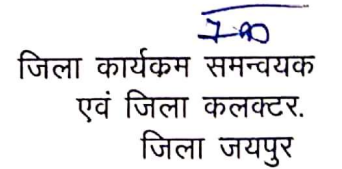 जिला कार्यकम समन्वयक
एवं जिला कलक्टर.
जिला जयपुर